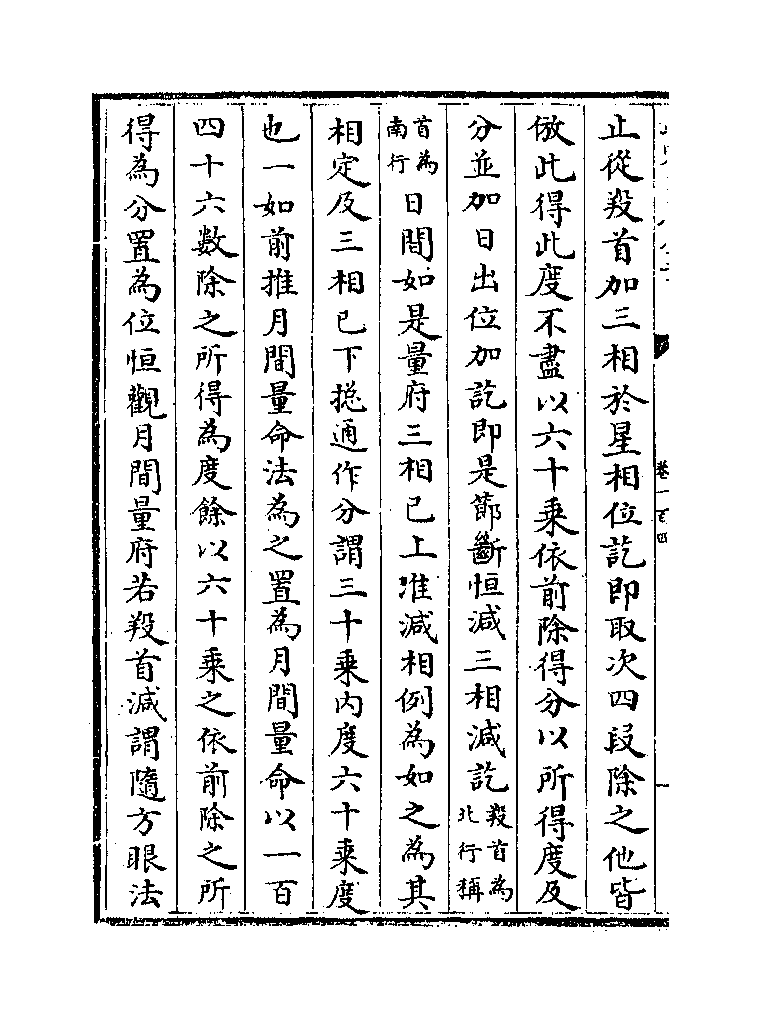 止從羖首加三相於星相位訖即取次四段除之他皆
倣此得此度不盡以六十乘依前除得分以所得度及
分並加日出位加訖即是節斷恒減三相減訖羖首為北行稱
首為南行日間如是量府三相已上准減相例為如之為其
相定及三相已下揔通作分謂三十乘內度六十乘度
也一如前推月間量命法為之置為月間量命以一百
四十六數除之所得為度餘以六十乘之依前除之所
得為分置為位恒觀月間量府若羖首減謂隨方眼法
卷一百四